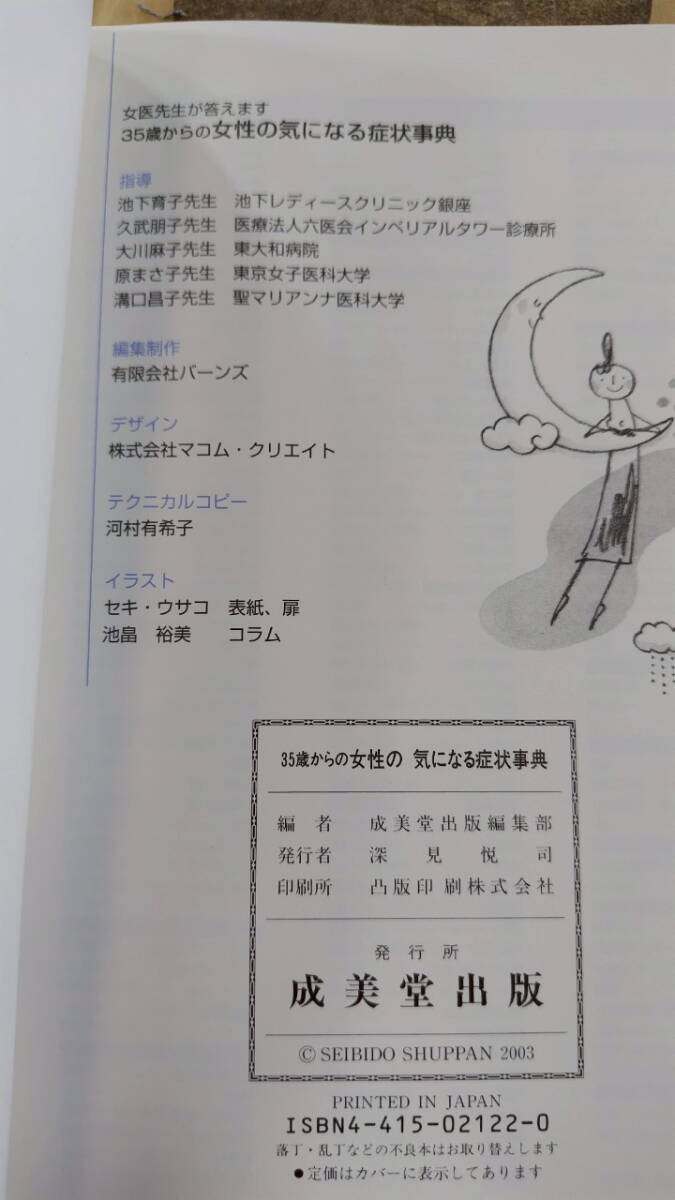 女医先生が答えます
35歳からの女性の気になる症状事典
指導
池下育子先生 池下レディースクリニック銀座
久武朋子先生 医療法人六医会インペリアルタワー診療所
大川麻子先生 東大和病院
原まさ子先生 東京女子医科大学
溝口昌子先生 聖マリアンナ医科大学
編集制作
有限会社バーンズ
デザイン
株式会社マコム・クリエイト
テクニカルコピー
河村有希子
イラスト
セキ・ウサコ 表紙、扉
池畠 裕美 コラム
35歳からの女性の 気になる症状事典
編者 成美堂出版編集部
発行者 深見悦司
印刷所 凸版印刷株式会社
発行所
成美堂出版
© SEIBIDO SHUPPAN 2003
PRINTED IN JAPAN
ISBN4-415-02122-0
落丁・乱丁などの不良本はお取り替えします
●定価はカバーに表示してあります